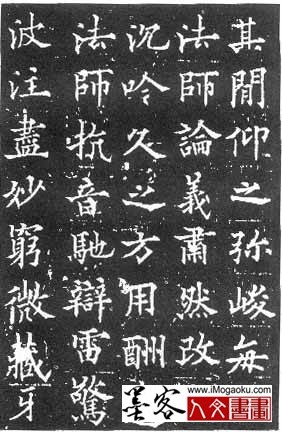 其閒仰之弥峻每
法師論義肅然改
沉吟久之方用酬
法師抗音馳辯雷驚
波注盡妙窮微藏牙
www.iMogaoku.com
墨客
人文書畫